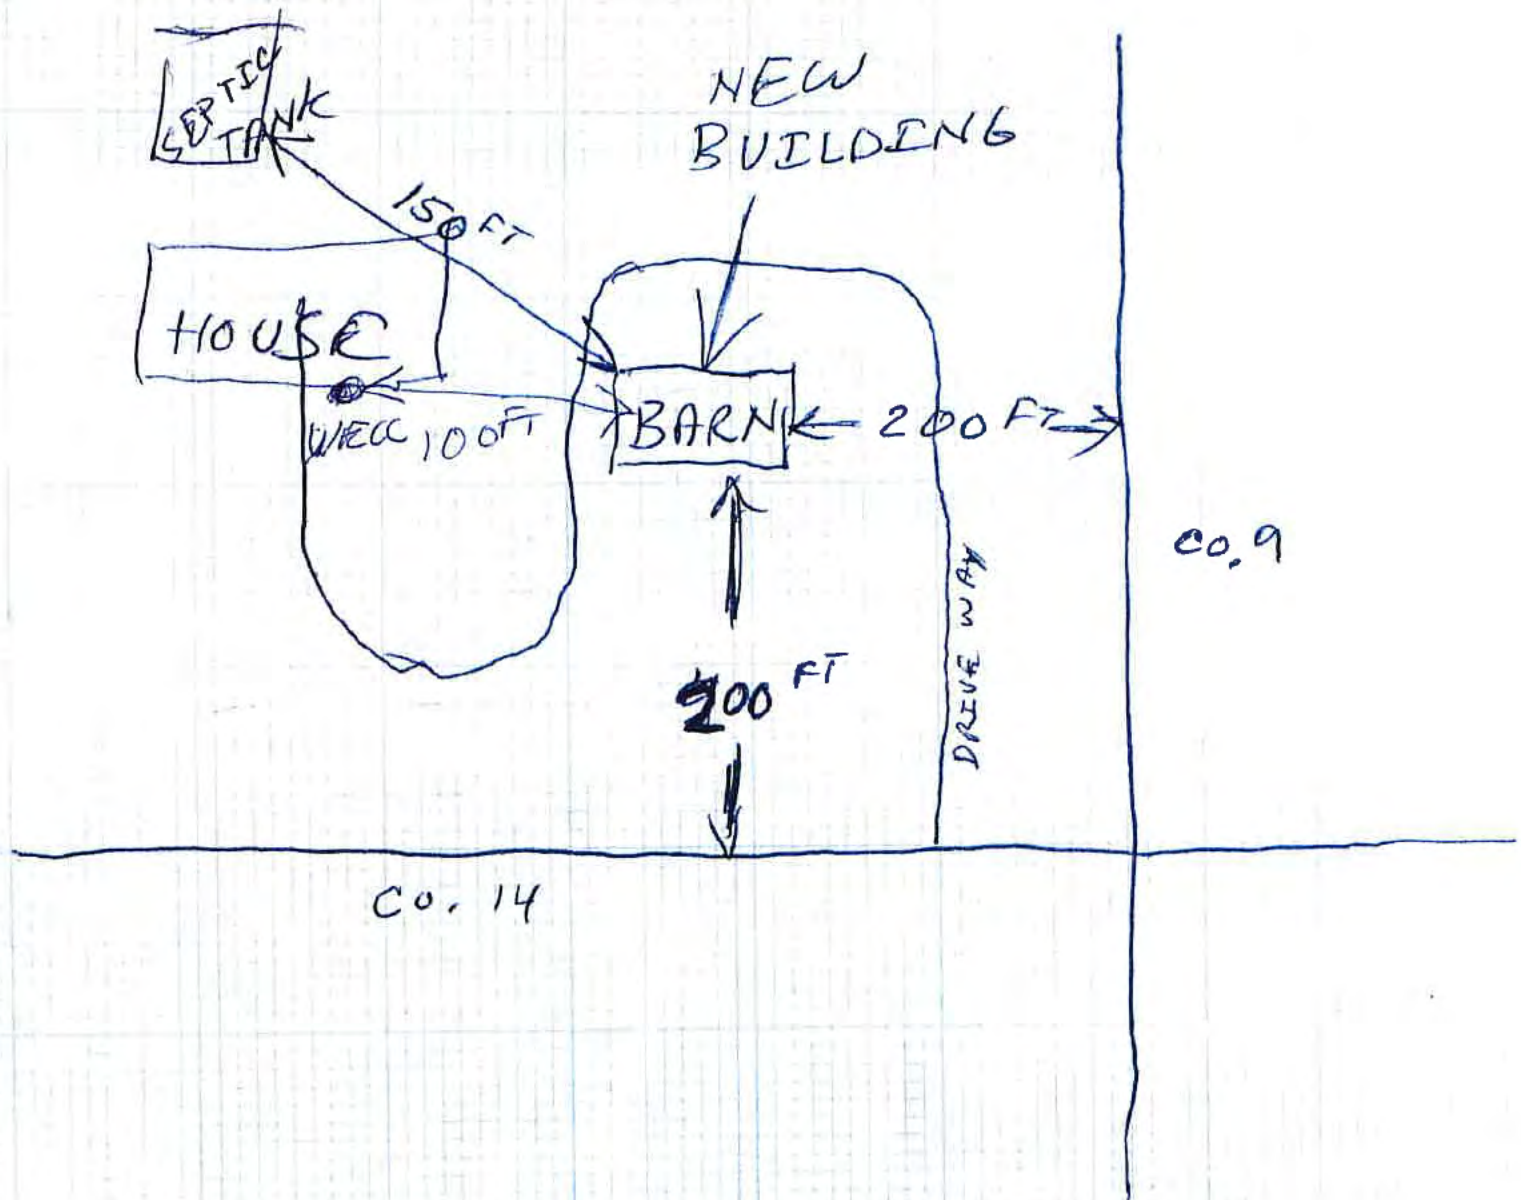 SEPTIC
TANK
NEW
BUILDING
150 FT
HOUSE
WELL 100 FT
BARN
200 FT
Co. 9
FT
DRIVE WAY
Co. 14